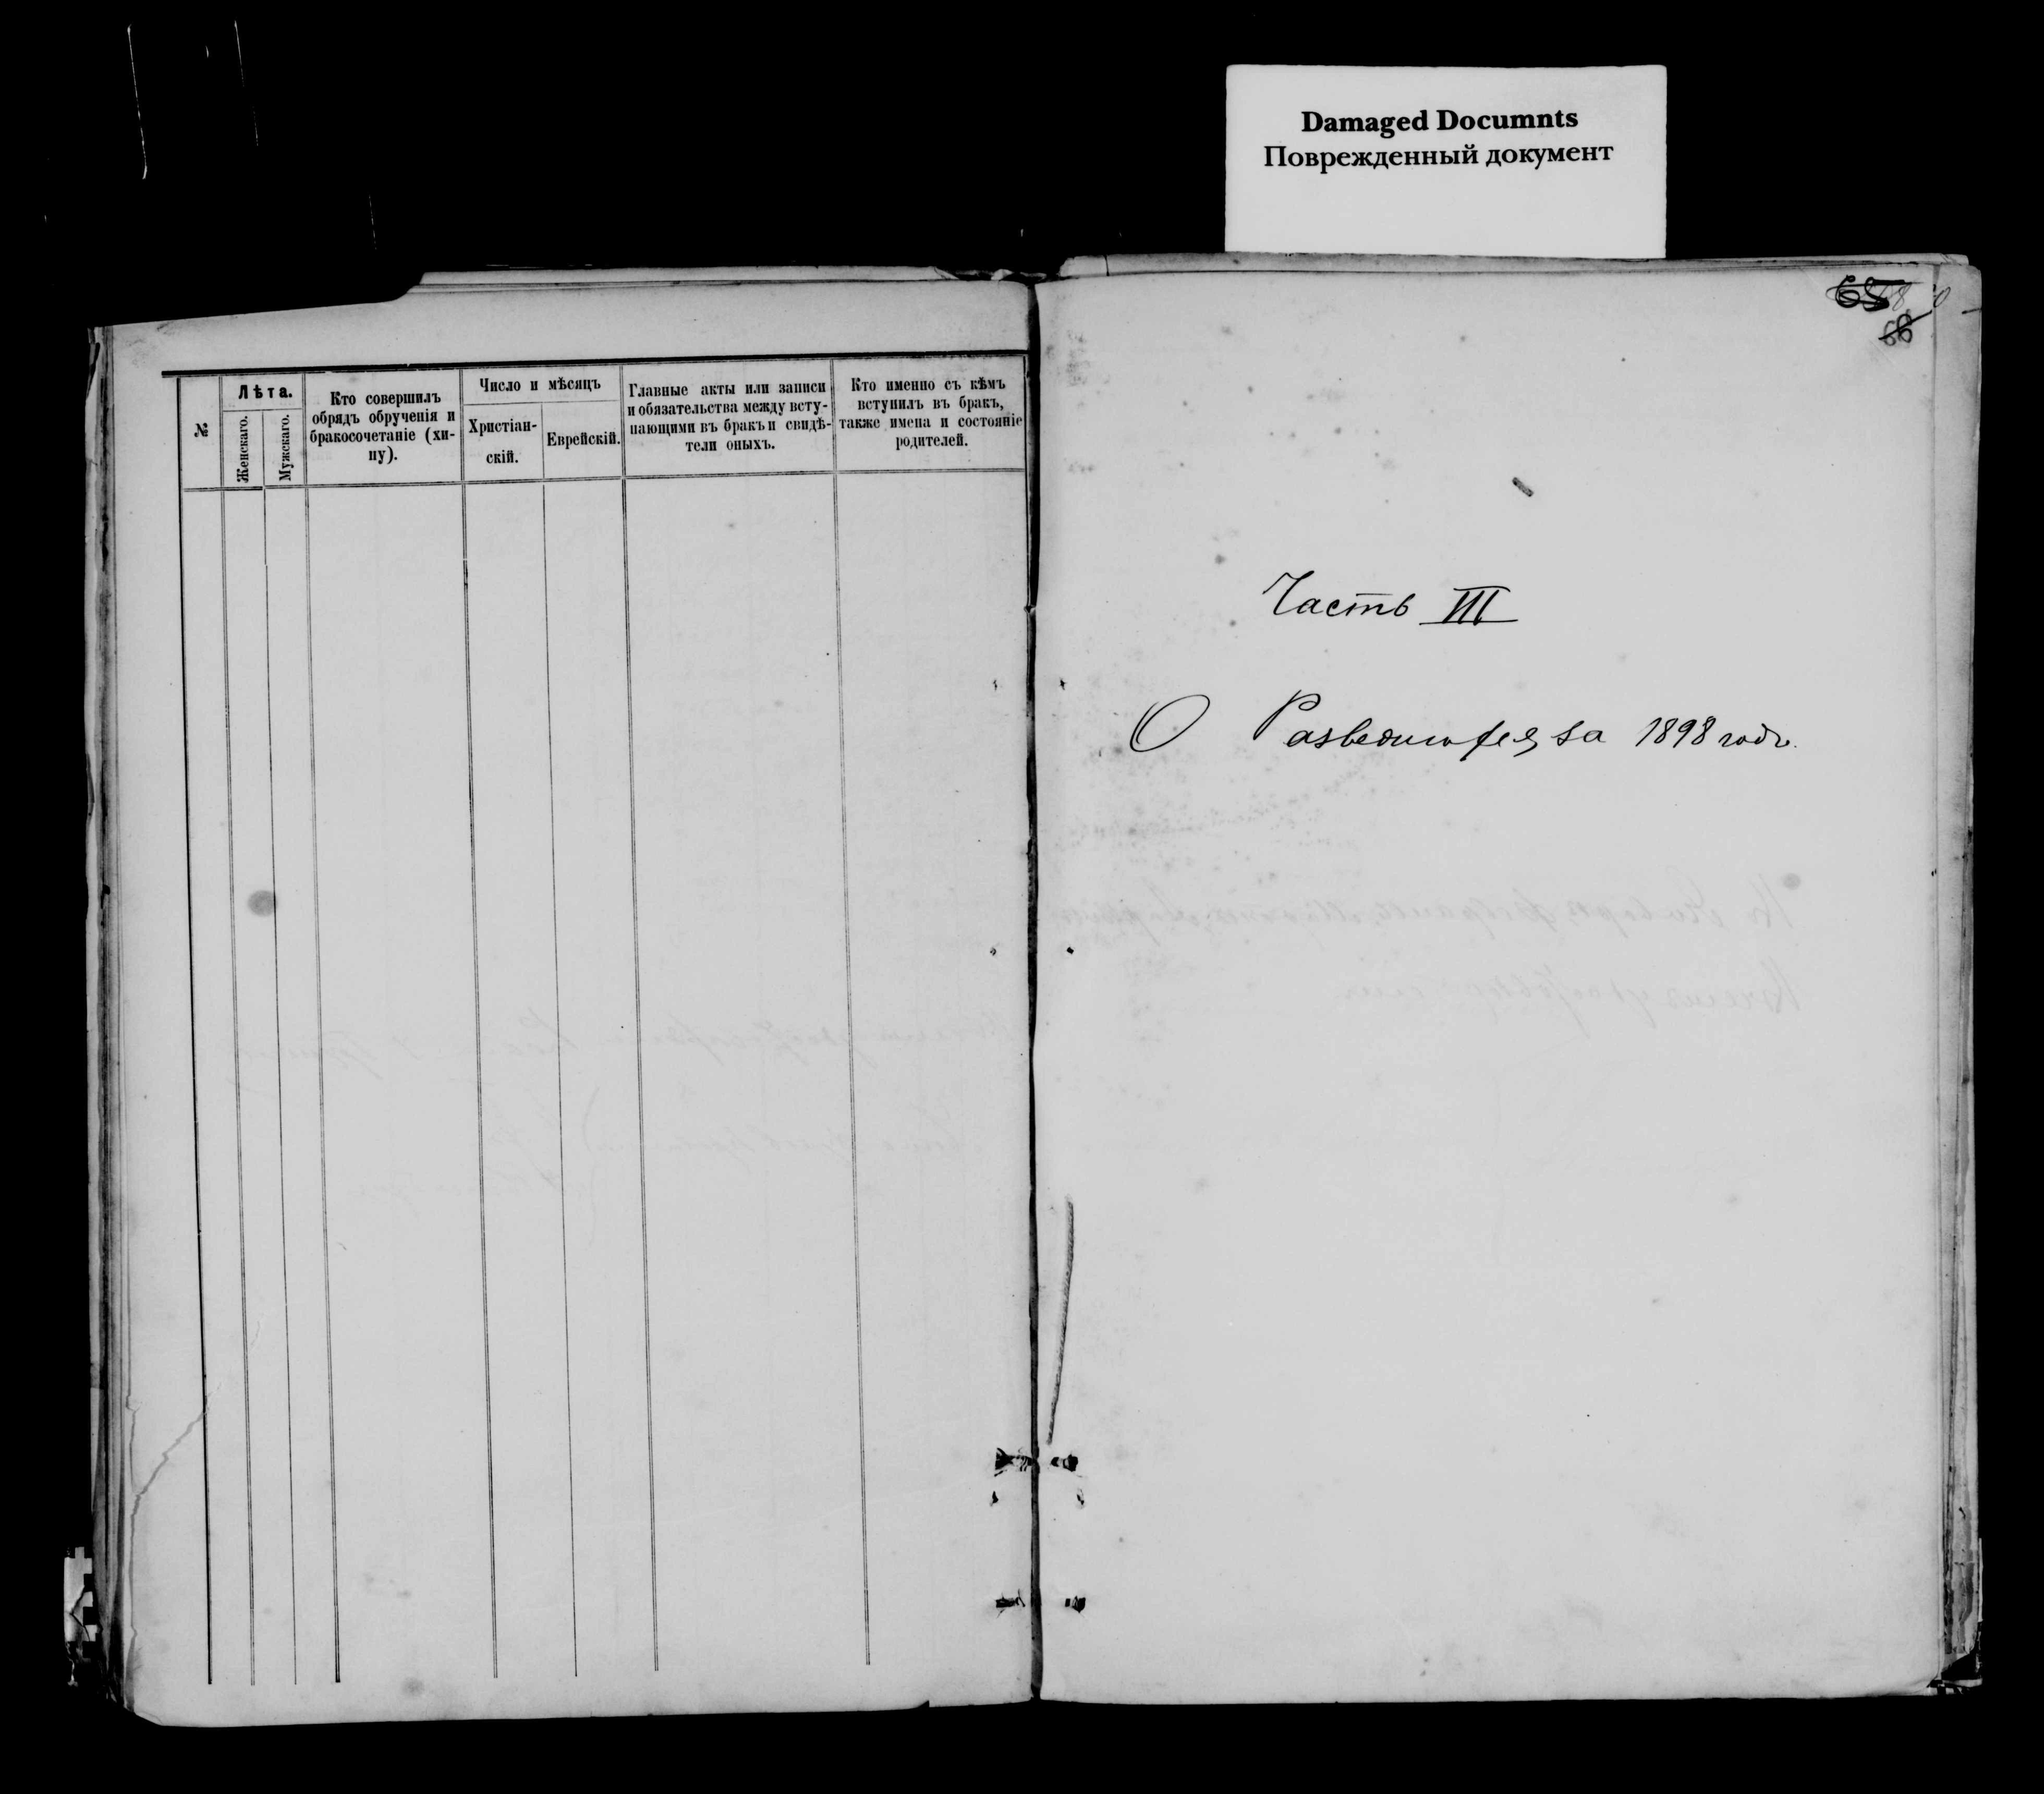 Damaged Documnts
Поврежденный документ
65
66
№
Лѣта.
Женскаго.
Мужскаго.
Кто совершилъ
обрядъ обрученія и
бракосочетаніе (хи-
пу).
Число и мѣсяцъ
Христіан-
скій.
Еврейскій.
Главные акты или записи
и обязательства между всту-
пающими въ бракъ и свидѣ-
тели оныхъ.
Кто именно съ кѣмъ
вступилъ въ бракъ,
также имена и состояніе
родителей.
Часть III
О за 1898 годъ.